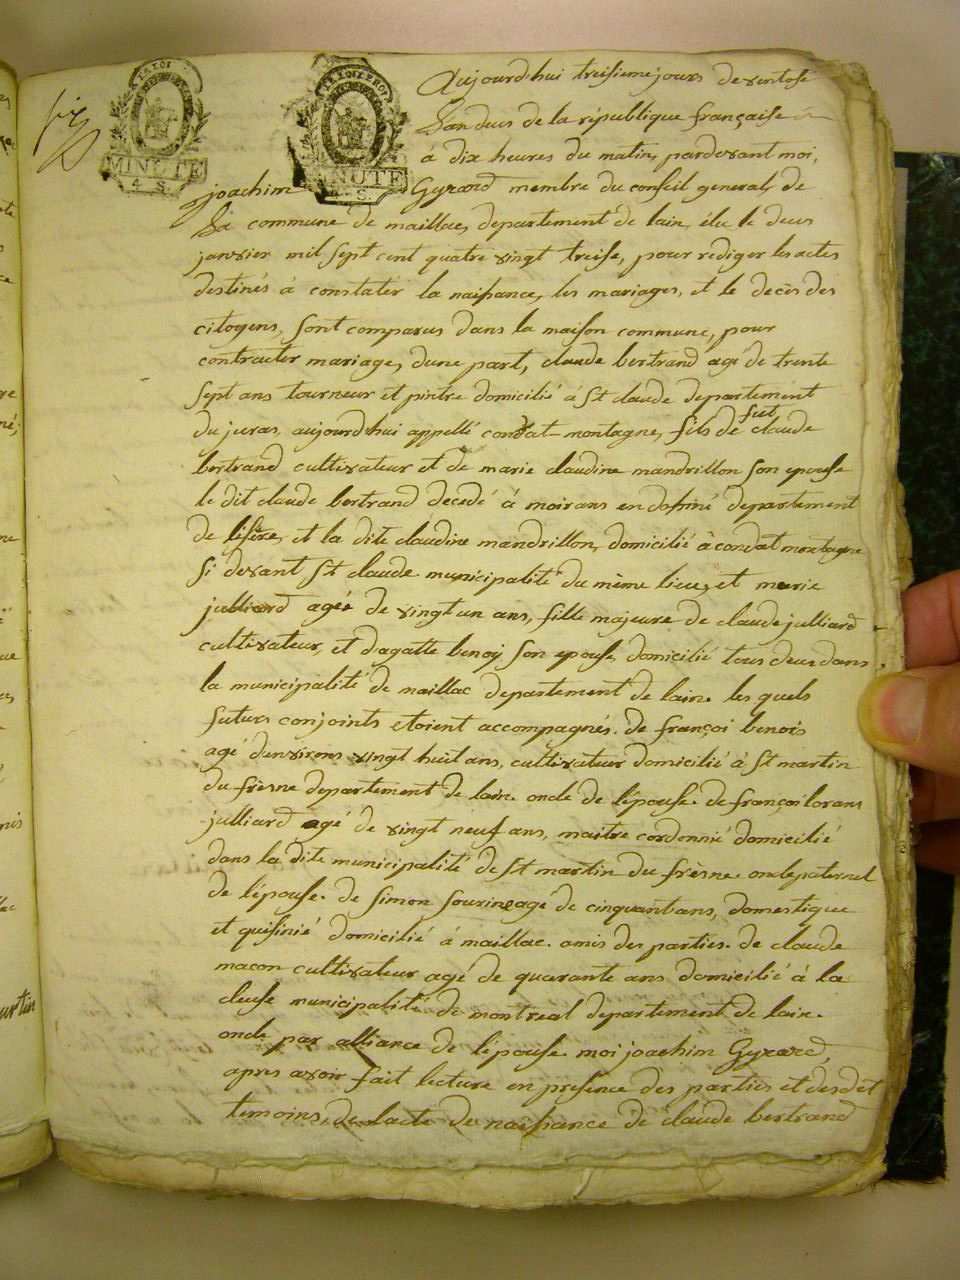 six
LA LOI
MINUTE
4. S.
LA LOI LE ROI
MINUTE
S.
Aujourdhui treisieme jours deventose
Landeus de la république française
à dix heures du matin, pardevant moi,
joachim Gyrard membre du conseil general de
La commune de maillac, departement de lain, élu le deus
janvier mil sept cent quatre vingt treise, pour rédiger les actes
destinés à constater la naissance, les mariages, et le décès des
citogens, sont comparus dans la maison commune, pour
contracter mariage, dune part, claude bertrand agé de trente
sept ans tourneur et pintre domicilié à St claude departement
du juras, aujourdhui appellé condat-montagne, fils de feut claude
bertrand cultivateur et de marie claudine mandrillon son epouse
le dit claude bertrand decedé à moirans en dofiné departement
de lisère, et la dite claudine mandrillon, domicilié à condat montagne
si devant St claude municipalité du même lieu, et marie
julliard agéé de vingt un ans, fille majeure de claude julliard
cultivateur, et dagatte benoy son epouse, domicilié tous deus dans
la municipalité de maillac departement de lain. les quels
futurs conjoints etoient accompagnés. de françoi benois
agé denvirons vingt huit ans, cultivateur domicilié à St martin
du frêsne departement de lain. oncle de lépouse. de françoi lorans
julliard agé de vingt neuf ans, maitre cordonnié domicilié
dans la dite municipalité de St martin du frêsne. oncle paternel
de lépouse. de simon sourine agé de cinquant ans, domestique
et quisinié domicilié à maillac. amis des parties. de claude
macon cultivateur agé de quarante ans domicilié à la
cluse municipalité de montreal departement de lain.
oncle par alliance de lépouse. moi joachim Gyrard,
apres avoir fait lecture en presence des parties et desdet
temoins, de lacte de naissance de claude bertrand